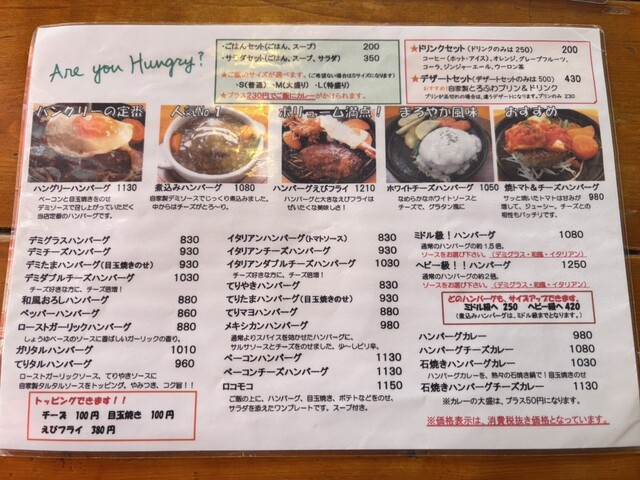 Are you Hungry?
・ごはんセット(ごはん、スープ) 200
・サラダセット(ごはん、スープ、サラダ) 350
★ご飯のサイズが選べます。(ご希望ない場合はSサイズになります)
・S(普通) ・M(大盛り) ・L(特盛り)
★プラス230円でご飯にカレーがかけられます。
★ドリンクセット (ドリンクのみは250) 200
コーヒー(ホット・アイス)、オレンジ、グレープフルーツ、
コーラ、ジンジャーエール、ウーロン茶
★デザートセット(デザートセットのみは500) 430
(おすすめ) 自家製とろふわプリン&ドリンク
プリンが品切れの場合は、違うデザートになります。プリンのみ 230
ハングリーの定番
人気No 1
ボリューム満点!
まろやか風味
おすすめ
ハングリーハンバーグ 1130
ベーコンと目玉焼きをのせ
デミソースで召し上がっていただく
当店定番のハンバーグです。
煮込みハンバーグ 1080
自家製デミソースでじっくり煮込みました。
中からはチーズがとろ~り。
ハンバーグえびフライ 1210
ハンバーグと大きなえびフライは
ぜいたくな美味しさ!
ホワイトチーズハンバーグ 1050
なめらかなホワイトソースと
チーズで、グラタン風に
焼トマト&チーズハンバーグ
サッと焼いたトマトは甘みが 980
増して、ジューシー。チーズとの
相性もバッチリです。
デミグラスハンバーグ 830
デミチーズハンバーグ 930
デミたまハンバーグ(目玉焼きのせ) 930
デミダブルチーズハンバーグ 1030
チーズ好きな方に。チーズ倍増!
和風おろしハンバーグ 880
ペッパーハンバーグ 860
ローストガーリックハンバーグ 880
しょうゆベースのソースに香ばしいガーリックの香り。
ガリタルハンバーグ 1010
てりタルハンバーグ 960
ローストガーリックソース、てりやきソースに
自家製タルタルソースをトッピング。やみつき、コク旨!!
トッピングできます!!
チーズ 100円 目玉焼き 100円
えびフライ 380円
イタリアンハンバーグ(トマトソース) 830
イタリアンチーズハンバーグ 930
イタリアンダブルチーズハンバーグ 1030
チーズ好きな方に。チーズ倍増!
てりやきハンバーグ 830
てりたまハンバーグ(目玉焼きのせ) 930
てりマヨハンバーグ 880
メキシカンハンバーグ 980
通常よりスパイスを効かせたハンバーグに、
サルサソースとチーズをのせました。少ーしピリ辛。
ベーコンハンバーグ 1130
ベーコンチーズハンバーグ 1130
ロコモコ 1150
ご飯の上に、ハンバーグ、目玉焼き、ポテトなどをのせ、
サラダを添えたワンプレートです。スープ付き。
ミドル級!ハンバーグ 1080
通常のハンバーグの約1.5倍。
ソースをお選び下さい。(デミグラス・和風・イタリアン)
ヘビー級!!ハンバーグ 1250
通常のハンバーグの約2倍。
ソースをお選び下さい。(デミグラス・和風・イタリアン)
どのハンバーグも、サイズアップできます。
ミドル級へ 250 ヘビー級へ 420
(煮込みハンバーグは、ミドル級までとなります。)
ハンバーグカレー 980
ハンバーグチーズカレー 1080
石焼きハンバーグカレー 1130
ハンバーグカレーを、熱々の石焼き鍋で!目玉焼きのせ
石焼きハンバーグチーズカレー 1130
※カレーの大盛は、プラス50円になります。
※価格表示は、消費税抜き価格となっています。